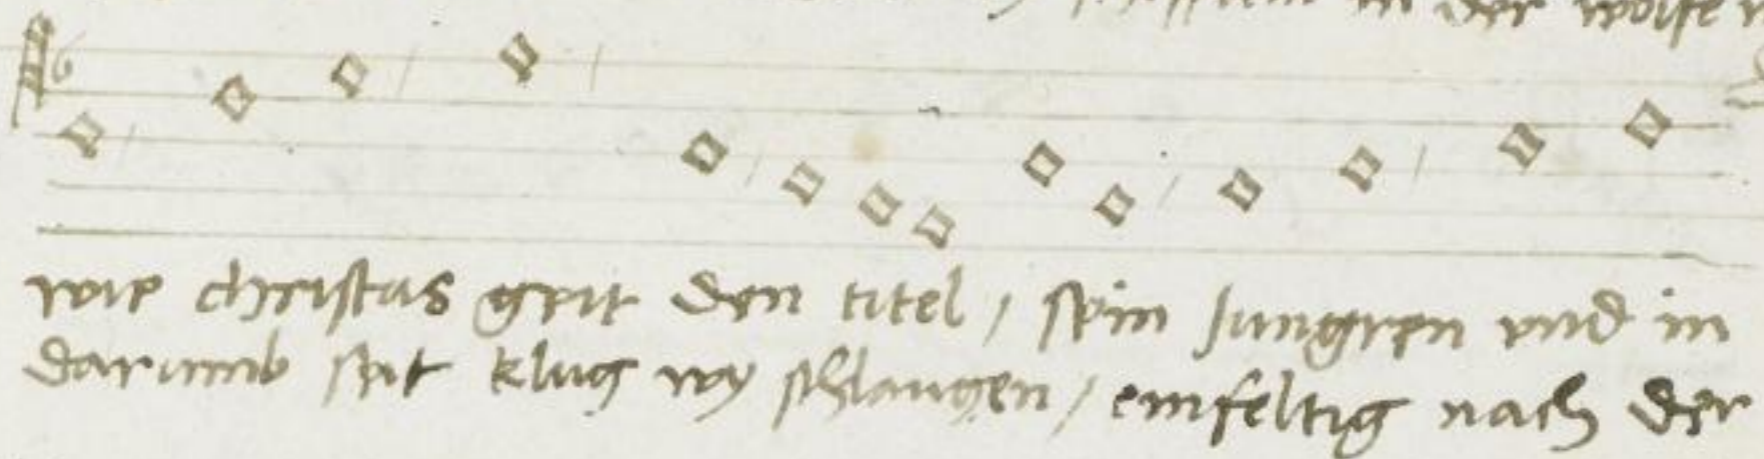 in der wolfe
wie christus geit den titel / sein Jungren vnd in
darumb seit klug wy schlangen / einfeltig nach der